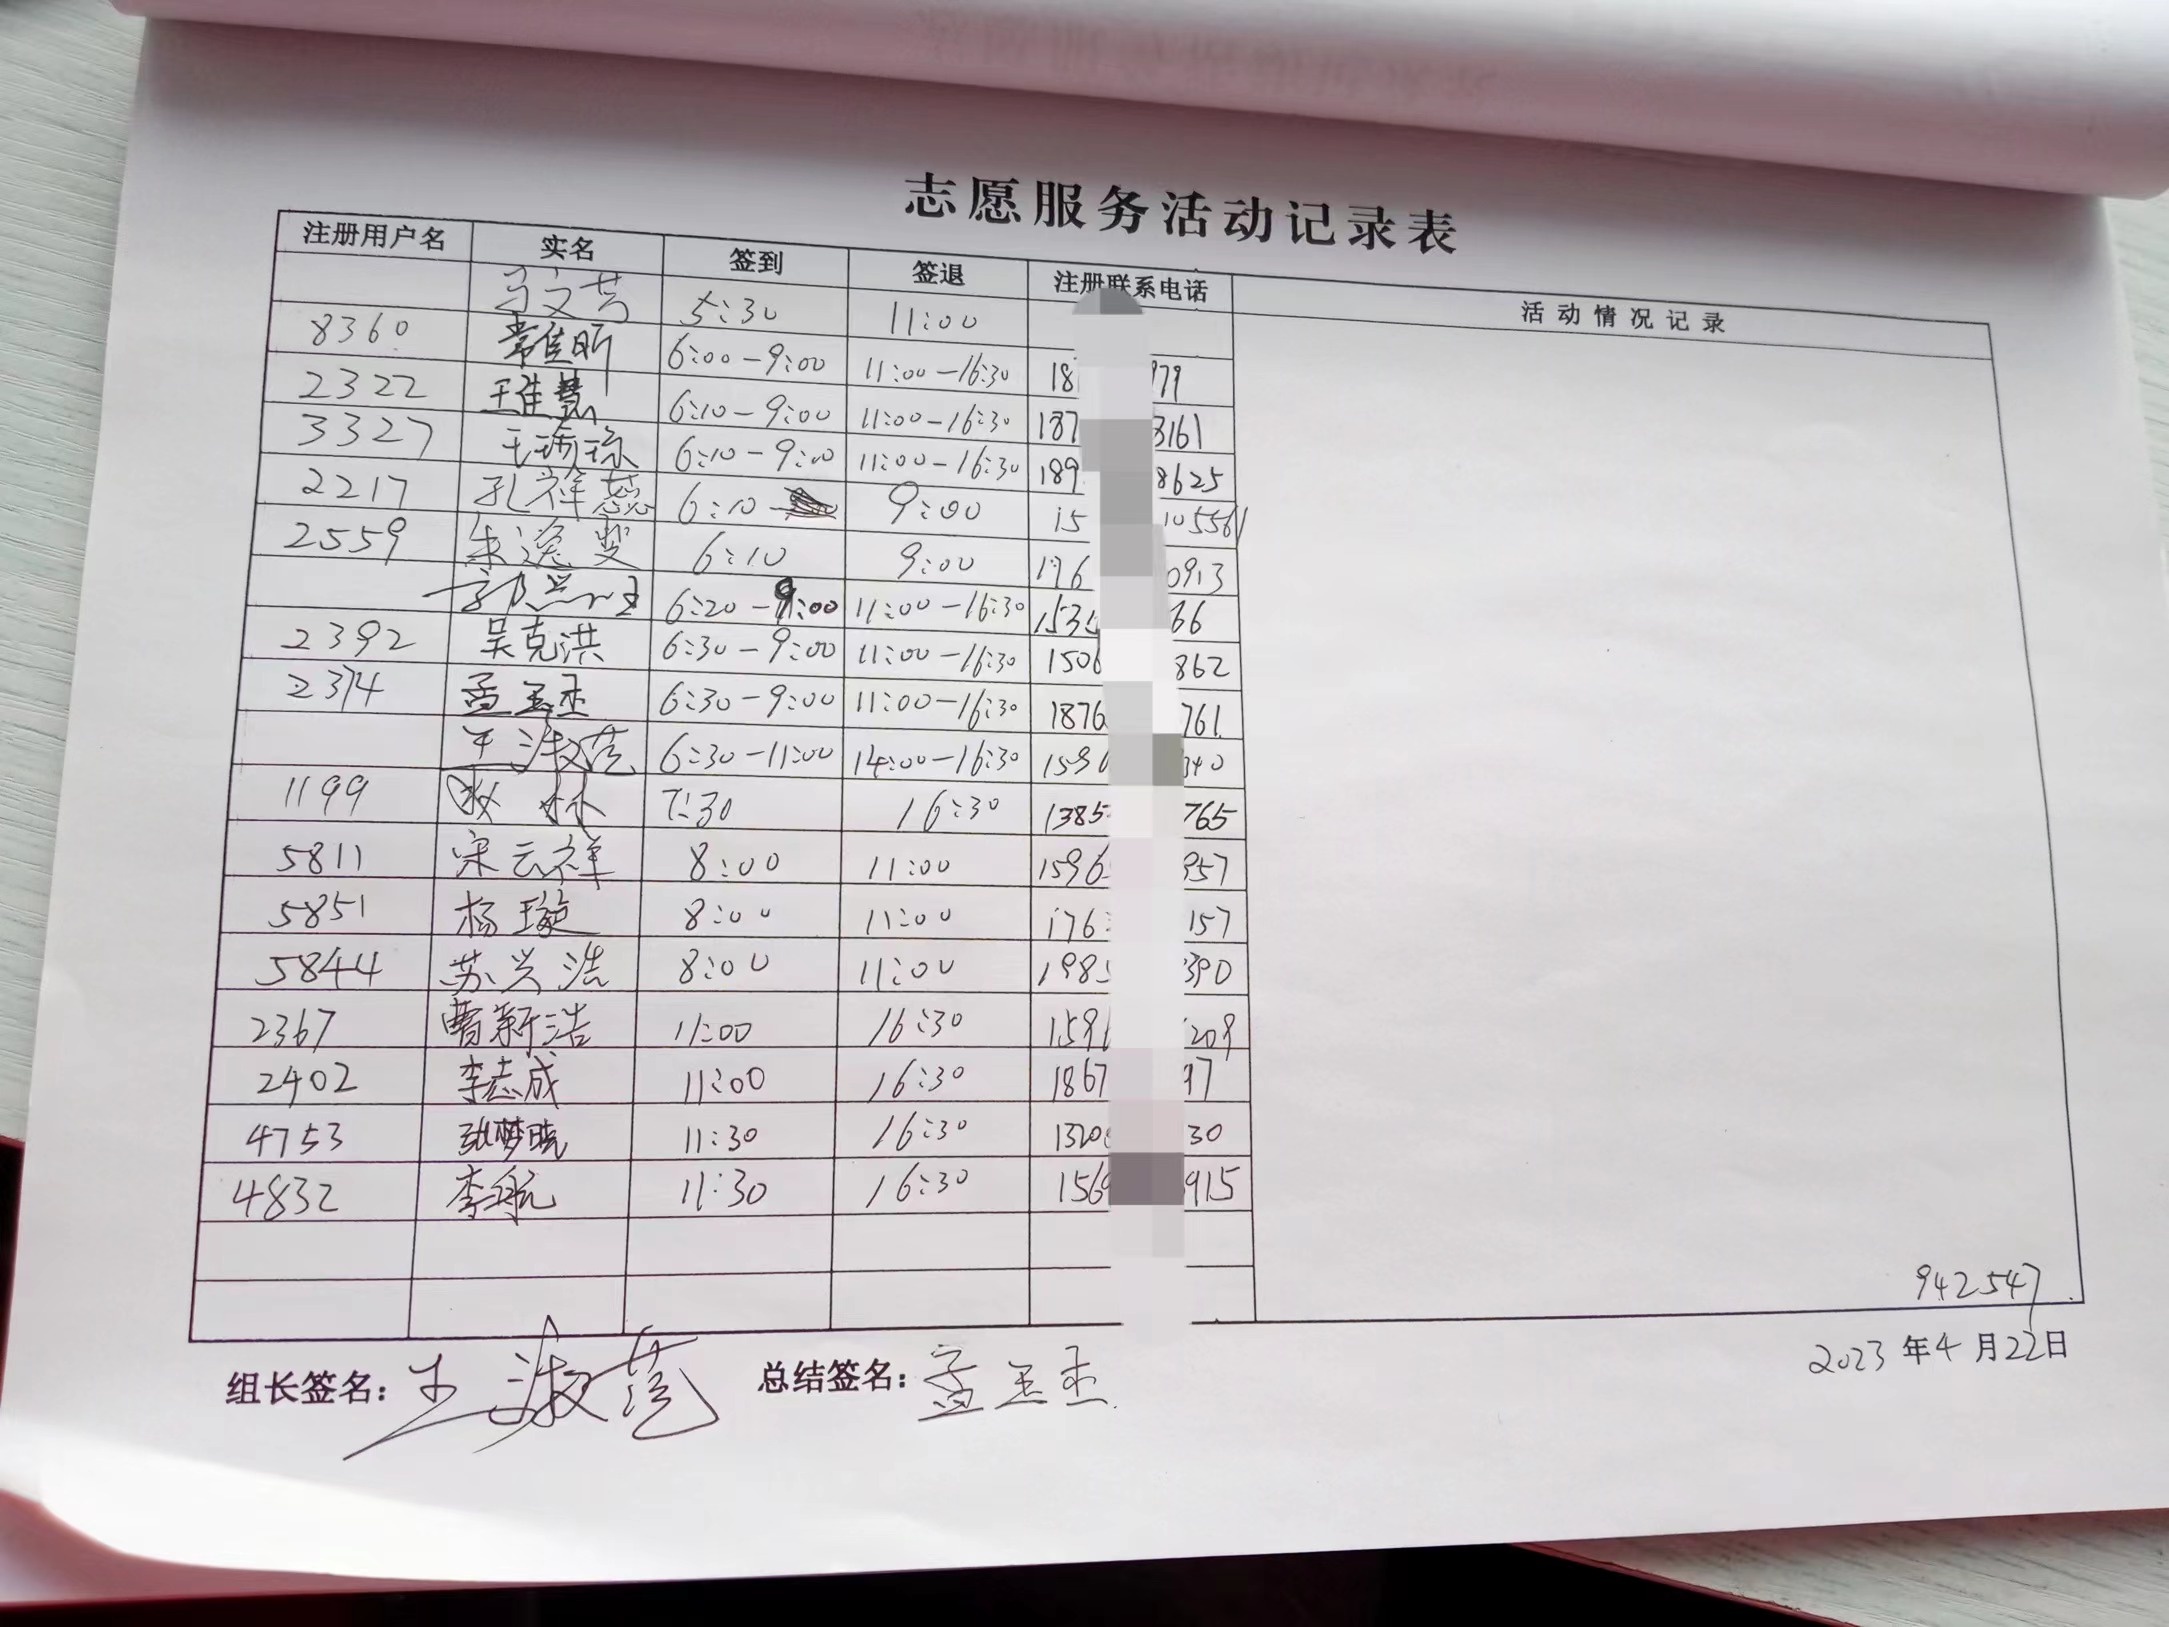 志愿服务活动记录表
注册用户名 实名 签到 签退 注册联系电话 活动情况记录
5:30 11:00
8360 常佳昕 6:00-9:00 11:00-16:30 18 979
2322 王佳慧 6:10-9:00 11:00-16:30 187 3161
3327 6:10-9:00 11:00-16:30 189 8625
2217 孔祥蕊 6:10 9:00 15 105561
2559 朱逸雯 6:10 9:00 176 0913
6:20-9:00 11:00-16:30 1535 66
2392 吴克洪 6:30-9:00 11:00-16:30 1506 862
2374 孟玉玉 6:30-9:00 11:00-16:30 1876 761
王淑范 6:30-11:00 14:00-16:30 1590 340
1199 7:30 16:30 1385 765
5811 宋云祥 8:00 11:00 1596 957
5851 杨璇 8:00 11:00 176 157
5844 苏兴浩 8:00 11:00 1985 390
2367 曹新浩 11:00 16:30 1591 209
2402 李志成 11:00 16:30 1867 97
4753 张梦晓 11:30 16:30 1320 30
4832 李航 11:30 16:30 156 915
942547
2023年4月22日
组长签名:王淑范 总结签名:孟玉玉